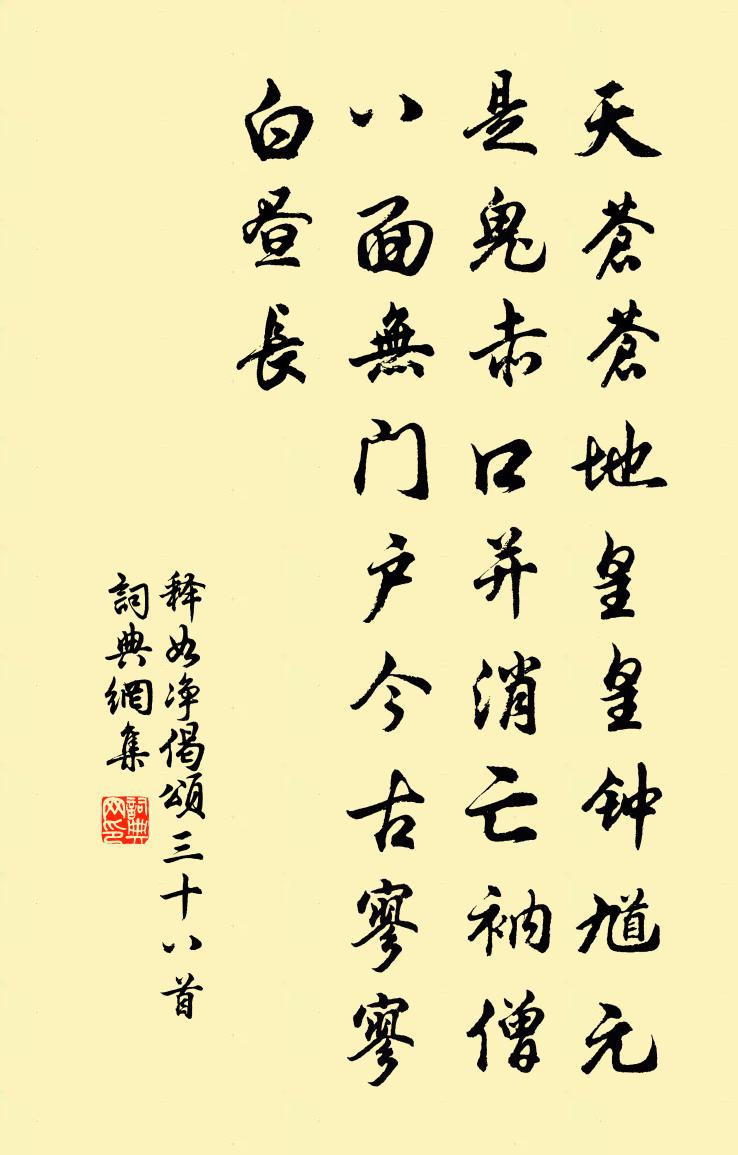 天蒼蒼地皇皇钟馗元
是鬼赤口并消亡衲僧
八面無门户今古寥寥
白昼長
释如净偈颂三十八首
詞典網集
詞典网印